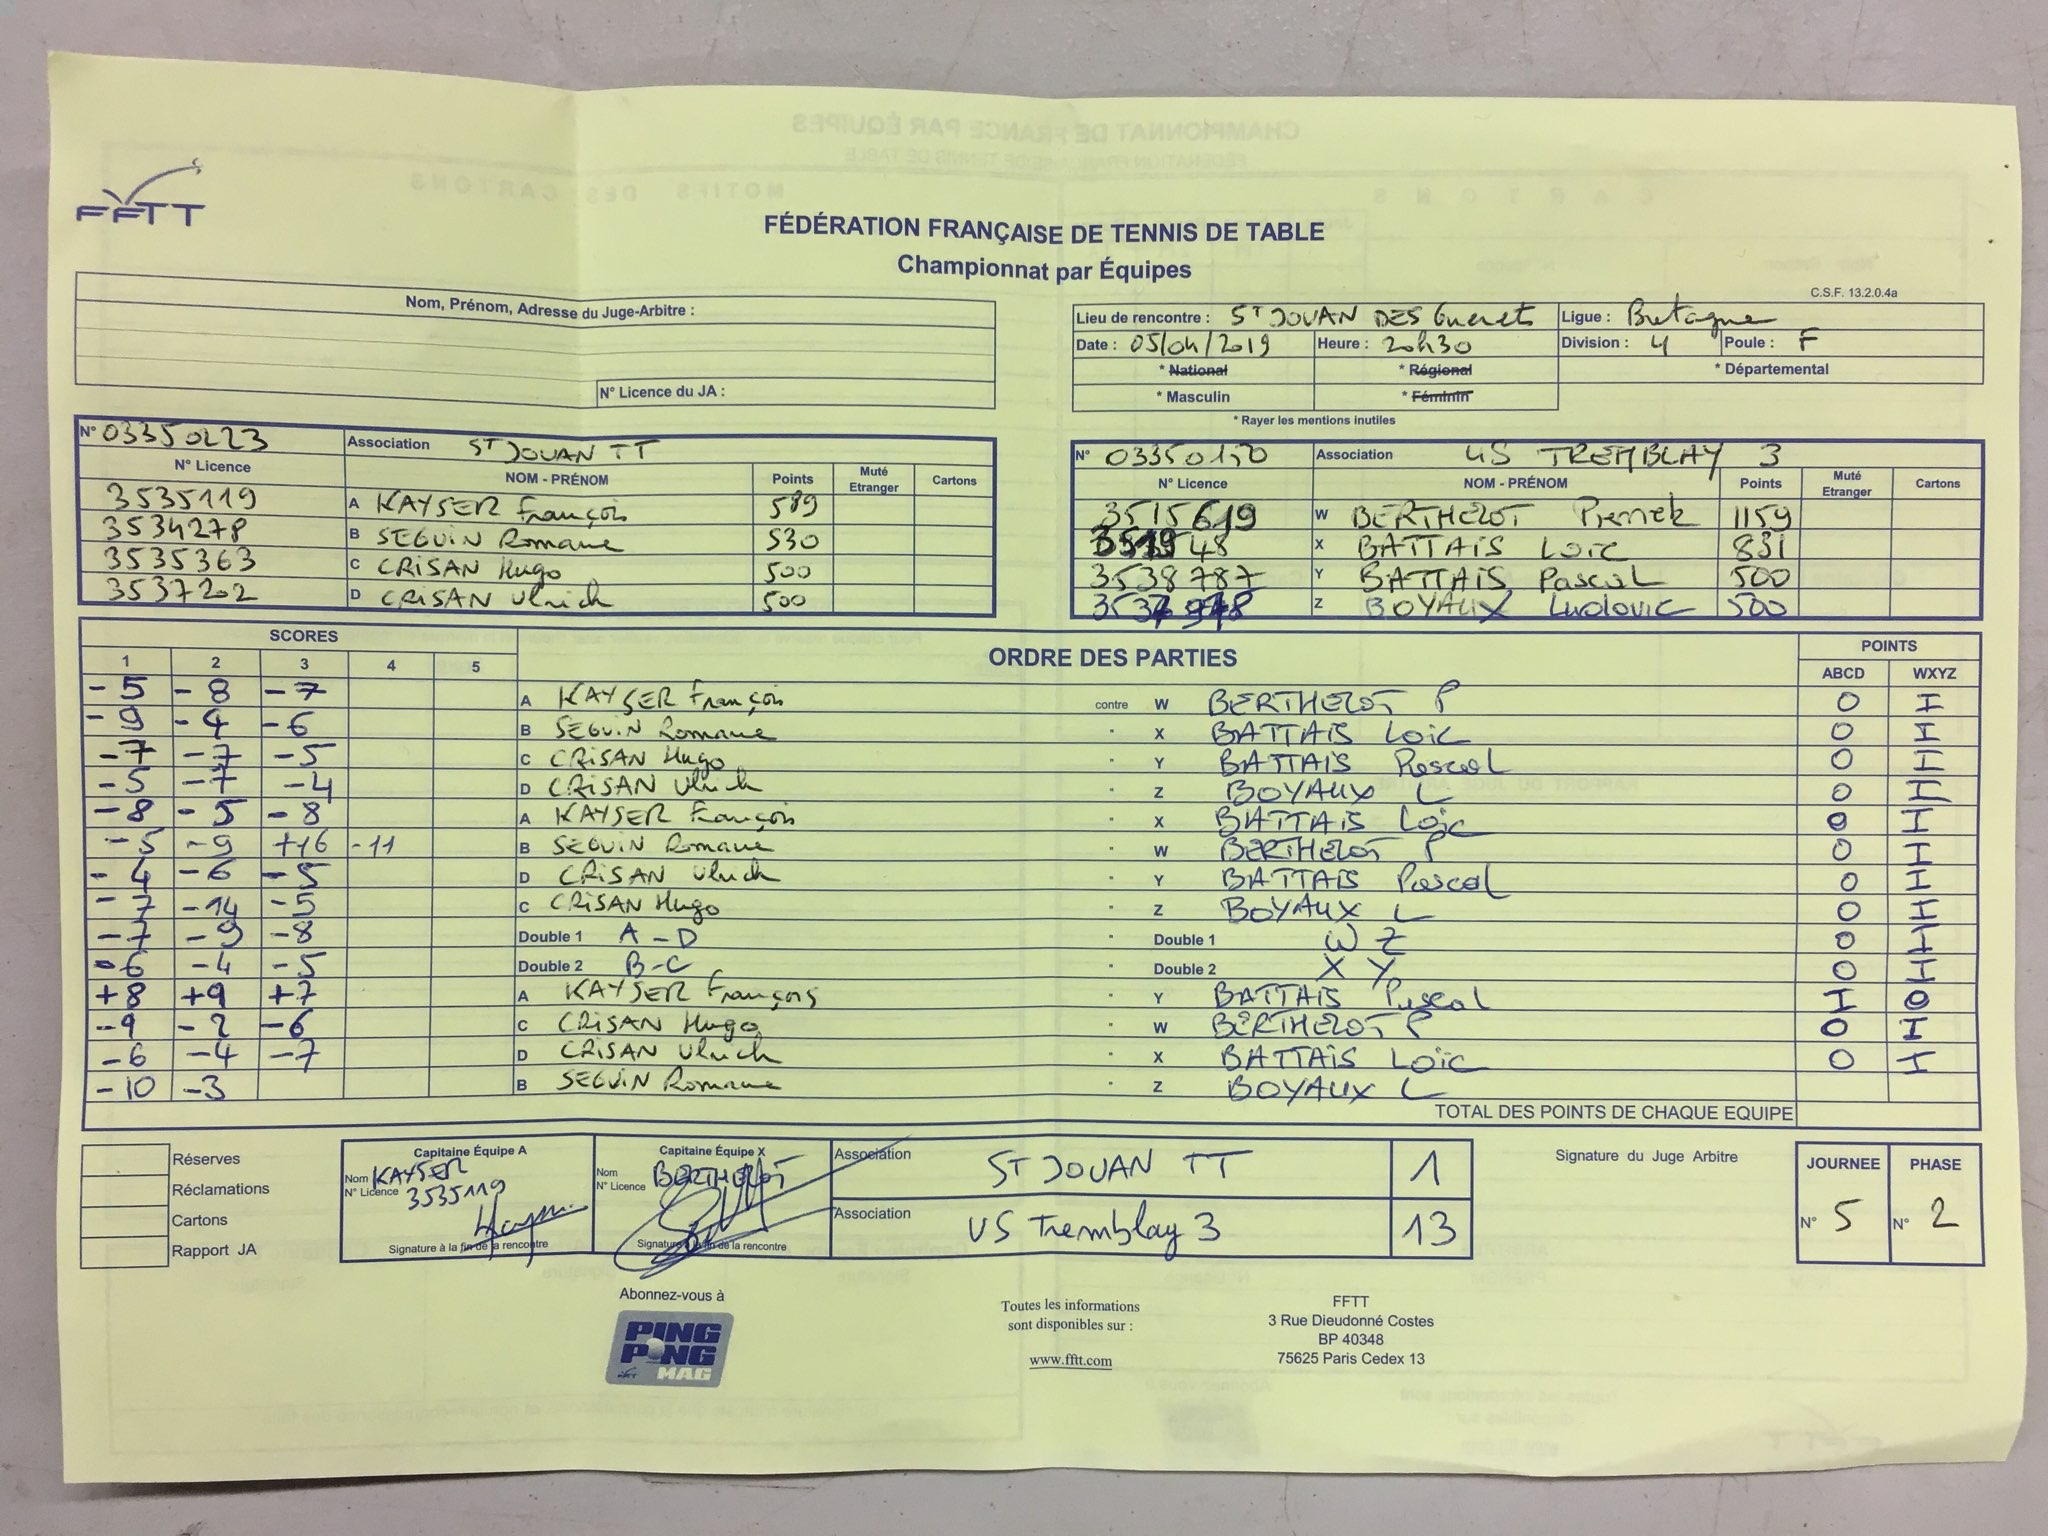 FFTT
FÉDÉRATION FRANÇAISE DE TENNIS DE TABLE
Championnat par Équipes
C.S.F. 13.2.0.4a
Nom, Prénom, Adresse du Juge-Arbitre :
N° Licence du JA :
Lieu de rencontre : ST JOUAN DES Guerets Ligue : Bretagne
Date : 05/04/2019 Heure : 20h30 Division : 4 Poule : F
* National * Régional * Départemental
* Masculin * Féminin
* Rayer les mentions inutiles
N° 03350223 Association ST JOUAN TT
N° Licence NOM - PRÉNOM Points Muté Etranger Cartons
3535119 A KAYSER François 589
3534278 B SEGUIN Romane 530
3535363 C CRISAN Hugo 500
3537202 D CRISAN Ulrich 500
N° 03350150 Association US TREMBLAY 3
N° Licence NOM - PRÉNOM Points Muté Etranger Cartons
3515619 W BERTHELOT Pierrick 1159
X BATTAIS Loïc 831
3538787 Y BATTAIS Pascal 500
Z BOYAUX Ludovic 500
SCORES ORDRE DES PARTIES POINTS
1 2 3 4 5 ABCD WXYZ
-5 -8 -7 A KAYSER François contre W BERTHELOT P 0 I
-9 -4 -6 B SEGUIN Romane " X BATTAIS Loïc 0 I
-7 -7 -5 C CRISAN Hugo " Y BATTAIS Pascal 0 I
-5 -7 -4 D CRISAN Ulrich " Z BOYAUX L 0 I
-8 -5 -8 A KAYSER François " X BATTAIS Loïc 0 I
-5 -9 +16 -11 B SEGUIN Romane " W BERTHELOT P 0 I
-4 -6 -5 D CRISAN Ulrich " Y BATTAIS Pascal 0 I
-7 -14 -5 C CRISAN Hugo " Z BOYAUX L 0 I
-7 -9 -8 Double 1 A-D " Double 1 W Z 0 I
-6 -4 -5 Double 2 B-C " Double 2 X Y 0 I
+8 +9 +7 A KAYSER François " Y BATTAIS Pascal I 0
-9 -2 -6 C CRISAN Hugo " W BERTHELOT P 0 I
-6 -4 -7 D CRISAN Ulrich " X BATTAIS Loïc 0 I
-10 -3 B SEGUIN Romane " Z BOYAUX L
TOTAL DES POINTS DE CHAQUE EQUIPE
Réserves
Réclamations
Cartons
Rapport JA
Capitaine Équipe A
Nom KAYSER
N° Licence 3535119
Signature à la fin de la rencontre
Capitaine Équipe X
Nom BERTHELOT
N° Licence
Signature à la fin de la rencontre
Association ST JOUAN TT 1
Association US Tremblay 3 13
Signature du Juge Arbitre
JOURNEE PHASE
N° 5 N° 2
Abonnez-vous à
PING
PONG
MAG
Toutes les informations
sont disponibles sur :
www.fftt.com
FFTT
3 Rue Dieudonné Costes
BP 40348
75625 Paris Cedex 13